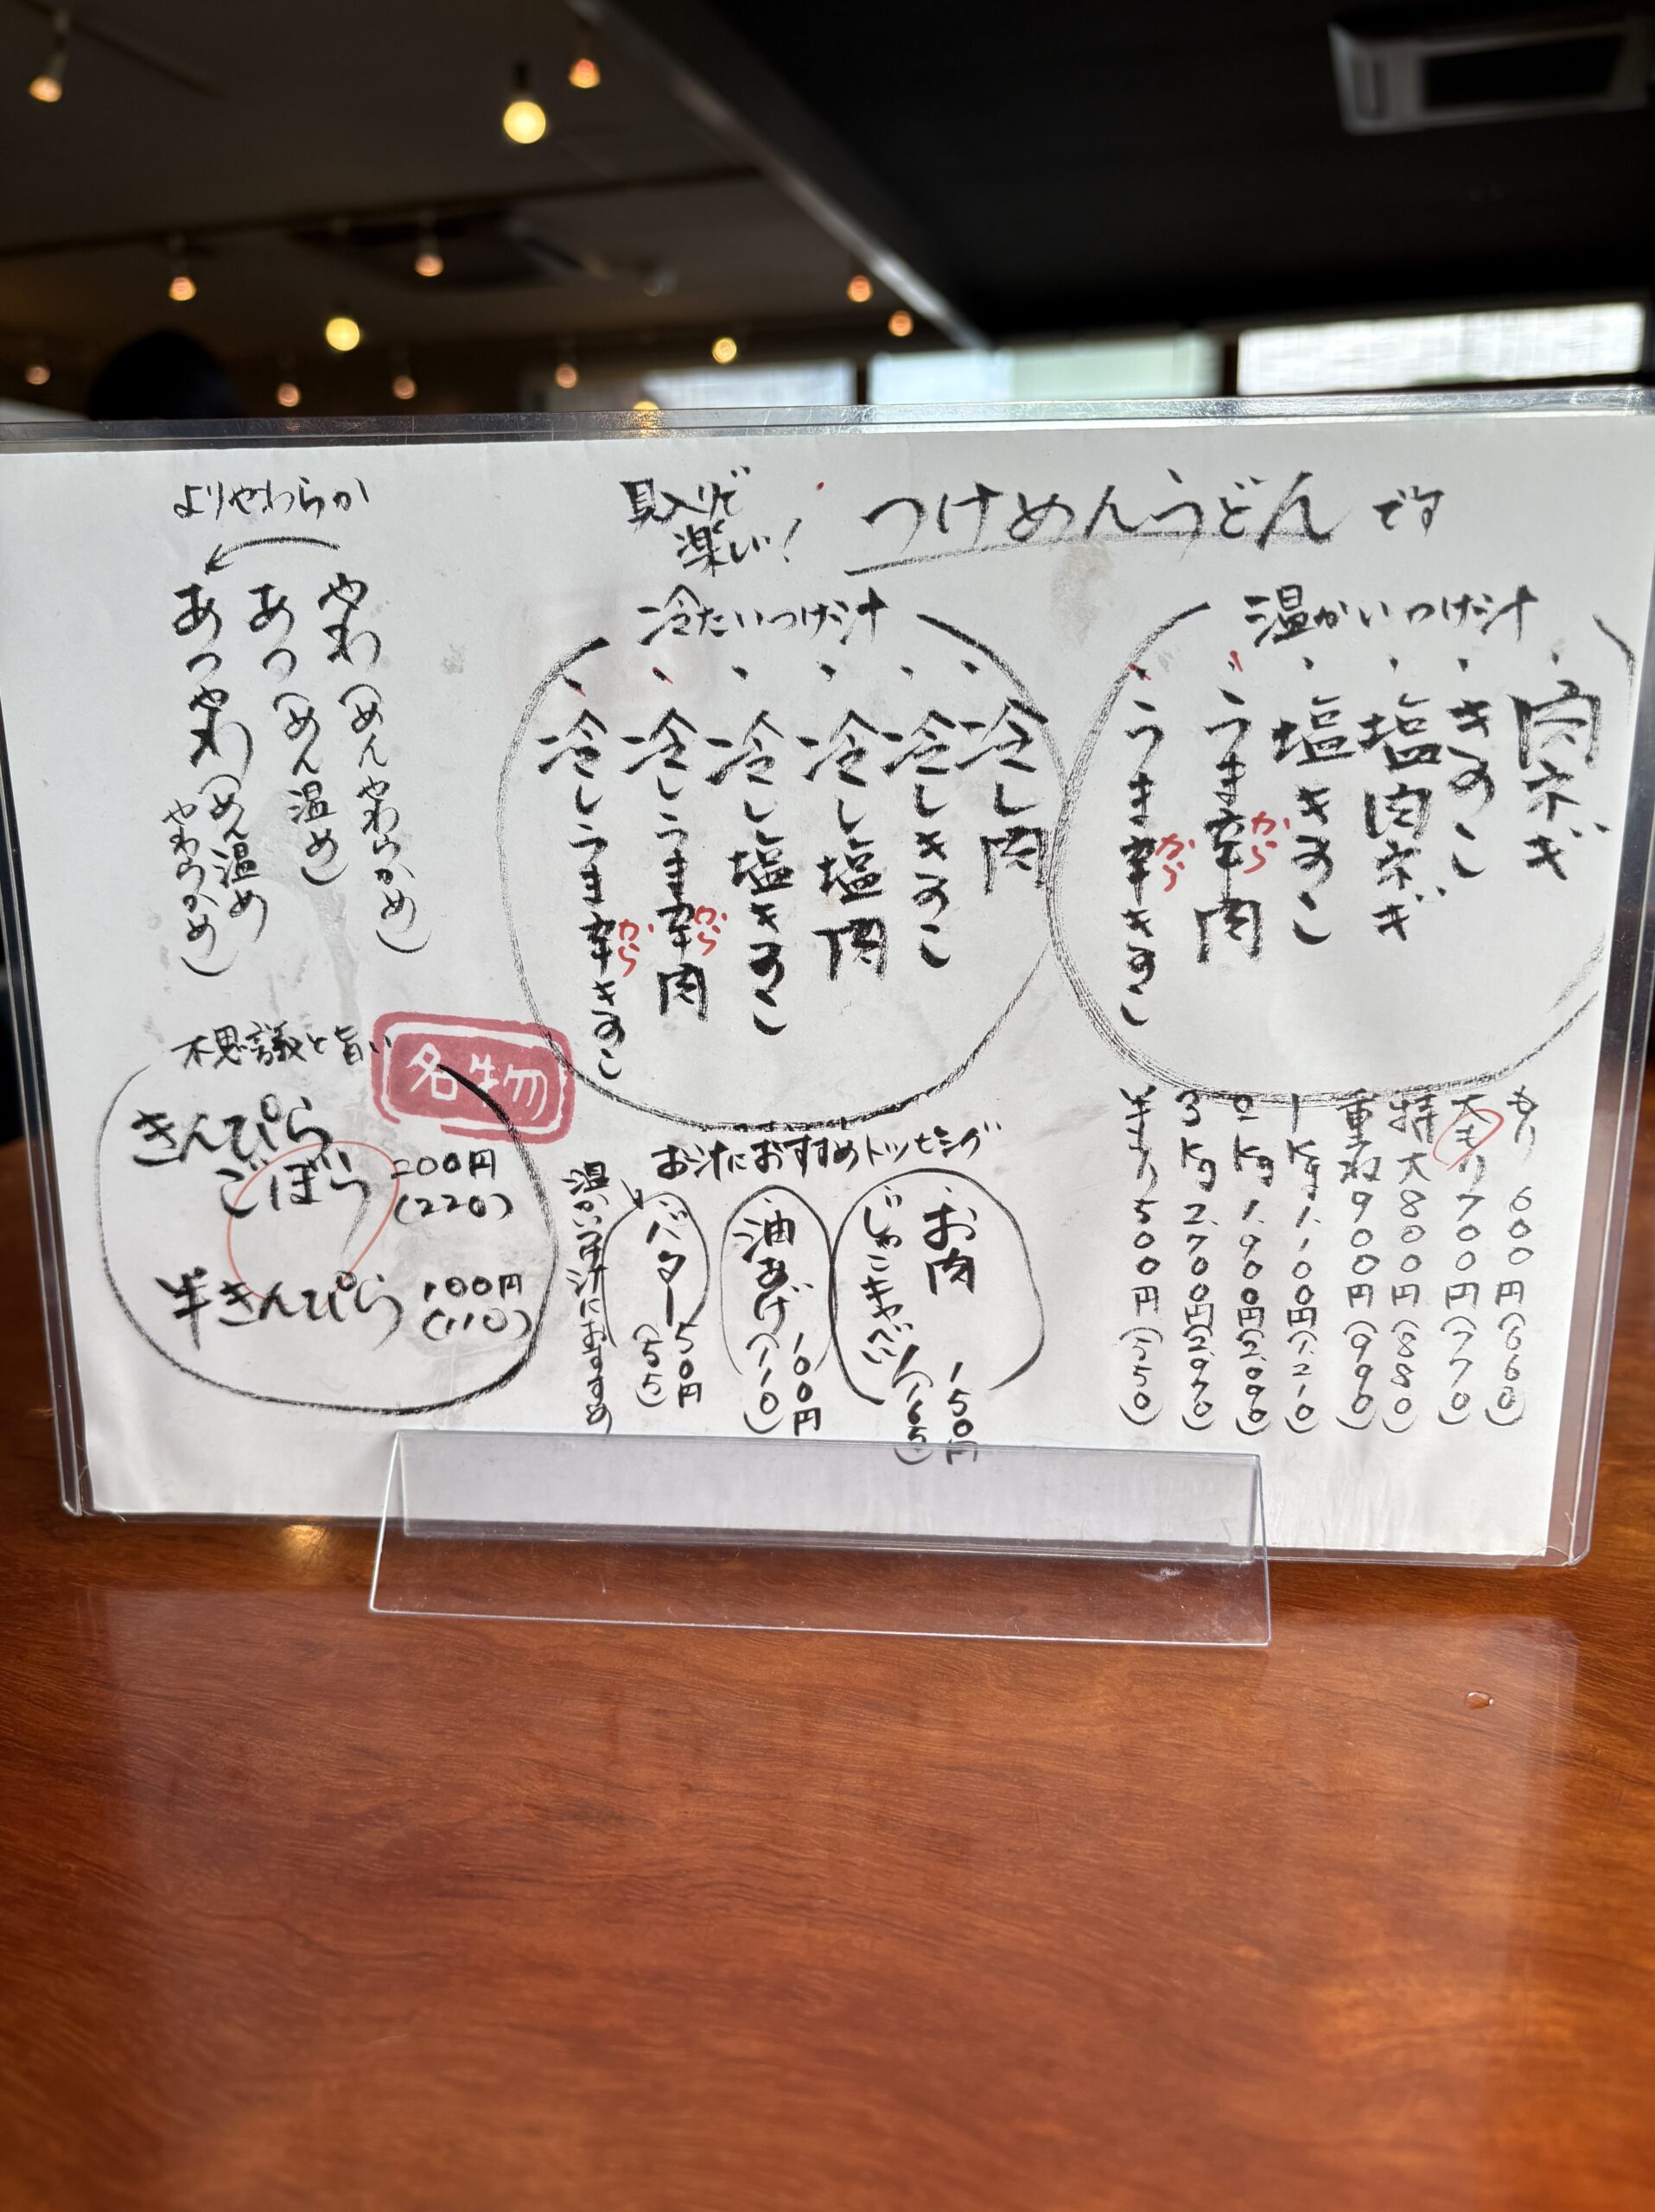 具入りで
楽しい！
つけめんうどんです
温かいつけ汁
・肉ネギ
・きのこ
・塩肉ネギ
・塩きのこ
・うま辛肉
から
・うま辛きのこ
から
冷たいつけ汁
・冷し肉
・冷しきのこ
・冷し塩肉
・冷し塩きのこ
・冷しうま辛肉
から
・冷しうま辛きのこ
から
よりやわらか
やわ(めんやわらかめ)
あつ(めん温め)
あつやわ(めん温め
やわらかめ)
もり 600円(660)
大もり 700円(770)
特大 800円(880)
重ね 900円(990)
1kg 1,100円(1,210)
2kg 1,900円(2,090)
3kg 2,700円(2,970)
半もり 500円(550)
お汁におすすめトッピング
・お肉 150円
・じゃこキャベツ (165)
・油あげ 100円
(110)
バター 50円
(55)
温かいつけ汁におすすめ
不思議と旨い
名物
きんぴら
ごぼう 200円
(220)
半きんぴら 100円
(110)